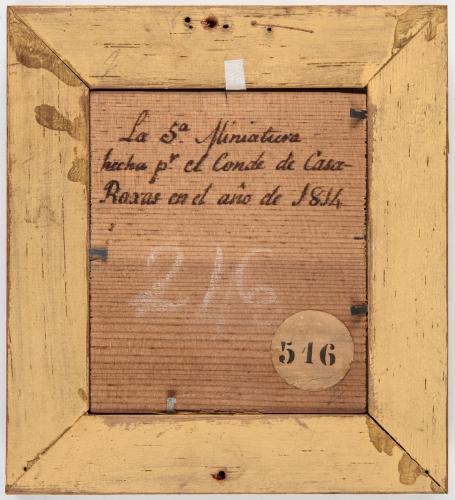 La 5ª Miniatura
hecha pr el Conde de Casa-
Roxas en el año de 1814
216
546